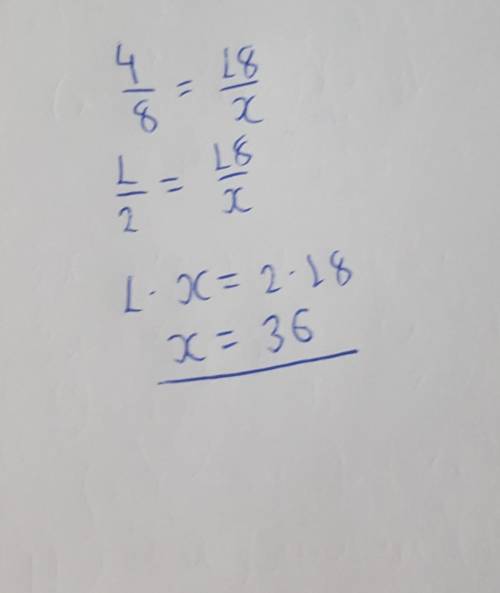 4/8 = 18/x
1/2 = 18/x
1· x = 2·18
x = 36